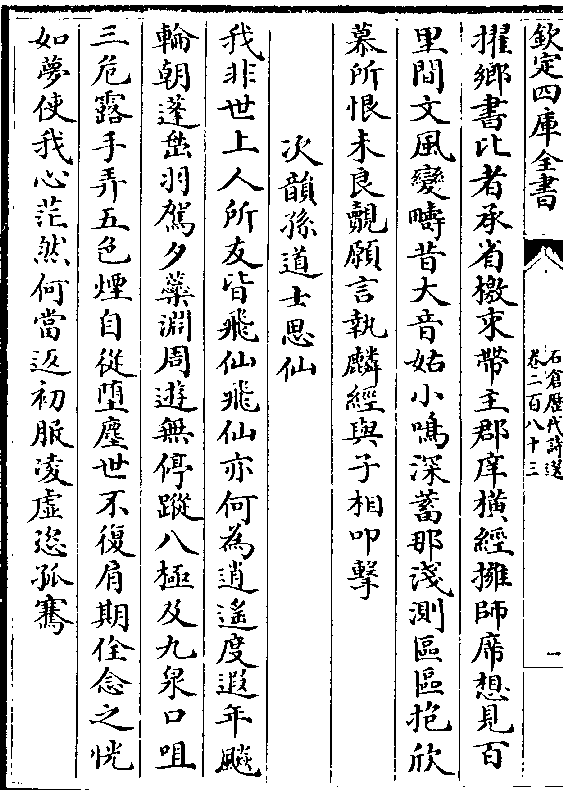 欽定四庫全書
石倉歴代詩選
卷二百八十三
一
擢鄉書比者承省檄束帶主郡庠橫經擁師席想見百
里間文風變疇昔大音姑小鳴深蓄那淺測區區抱欣
慕所恨未良覿願言執麟經與子相叩擊
次韻孫道士思仙
我非世上人所友皆飛仙飛仙亦何為逍遙度遐年飈
輪朝蓬𡷗羽駕夕藥淵周遊無停蹤八極及九泉口咀
三危露手弄五色煙自從墮塵世不復肩期佺念之恍
如夢使我心茫然何當返初服凌虛恣孤騫